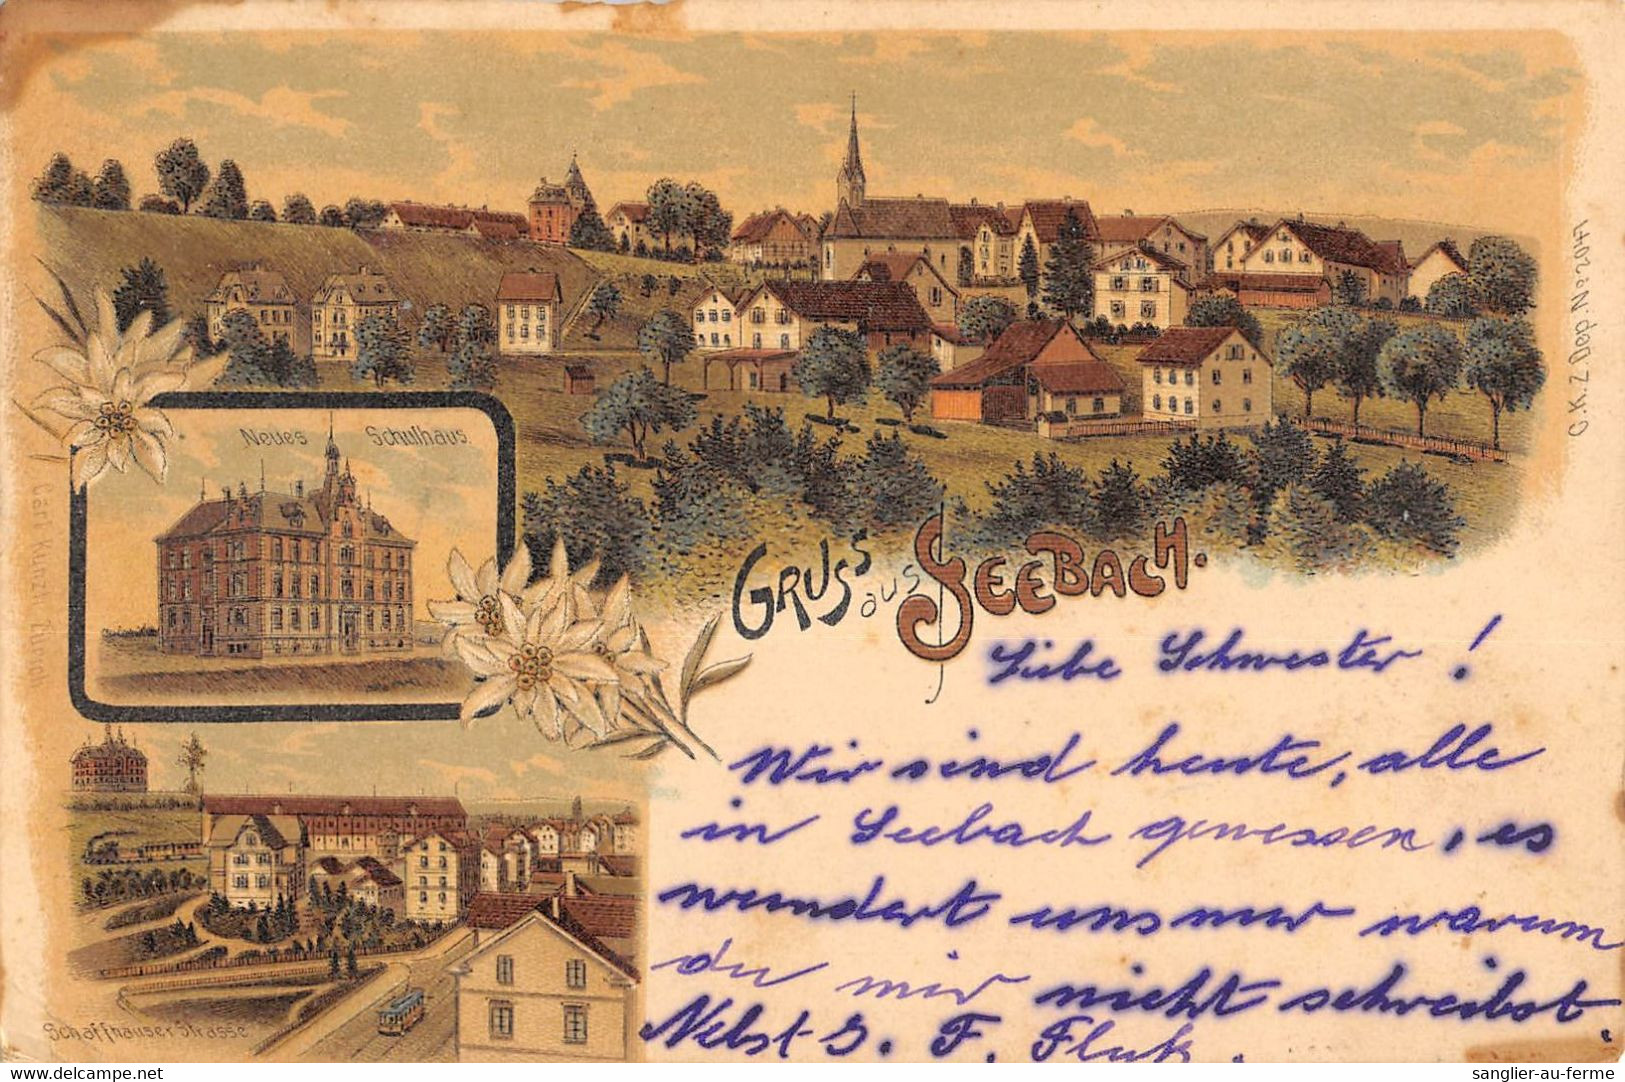 C.K.Z. Dep. No 2047
Neues Schulhaus.
Carl Künzli Zürich
GRUSS aus SEEBACH.
Liebe Schwester!
Wir sind heute, alle
in Seebach gewessen, es
wundert uns nur warum
du mir nicht schreibst.
Nebst G. F.
Schaffhauser Strasse
delcampe.net
sanglier-au-ferme